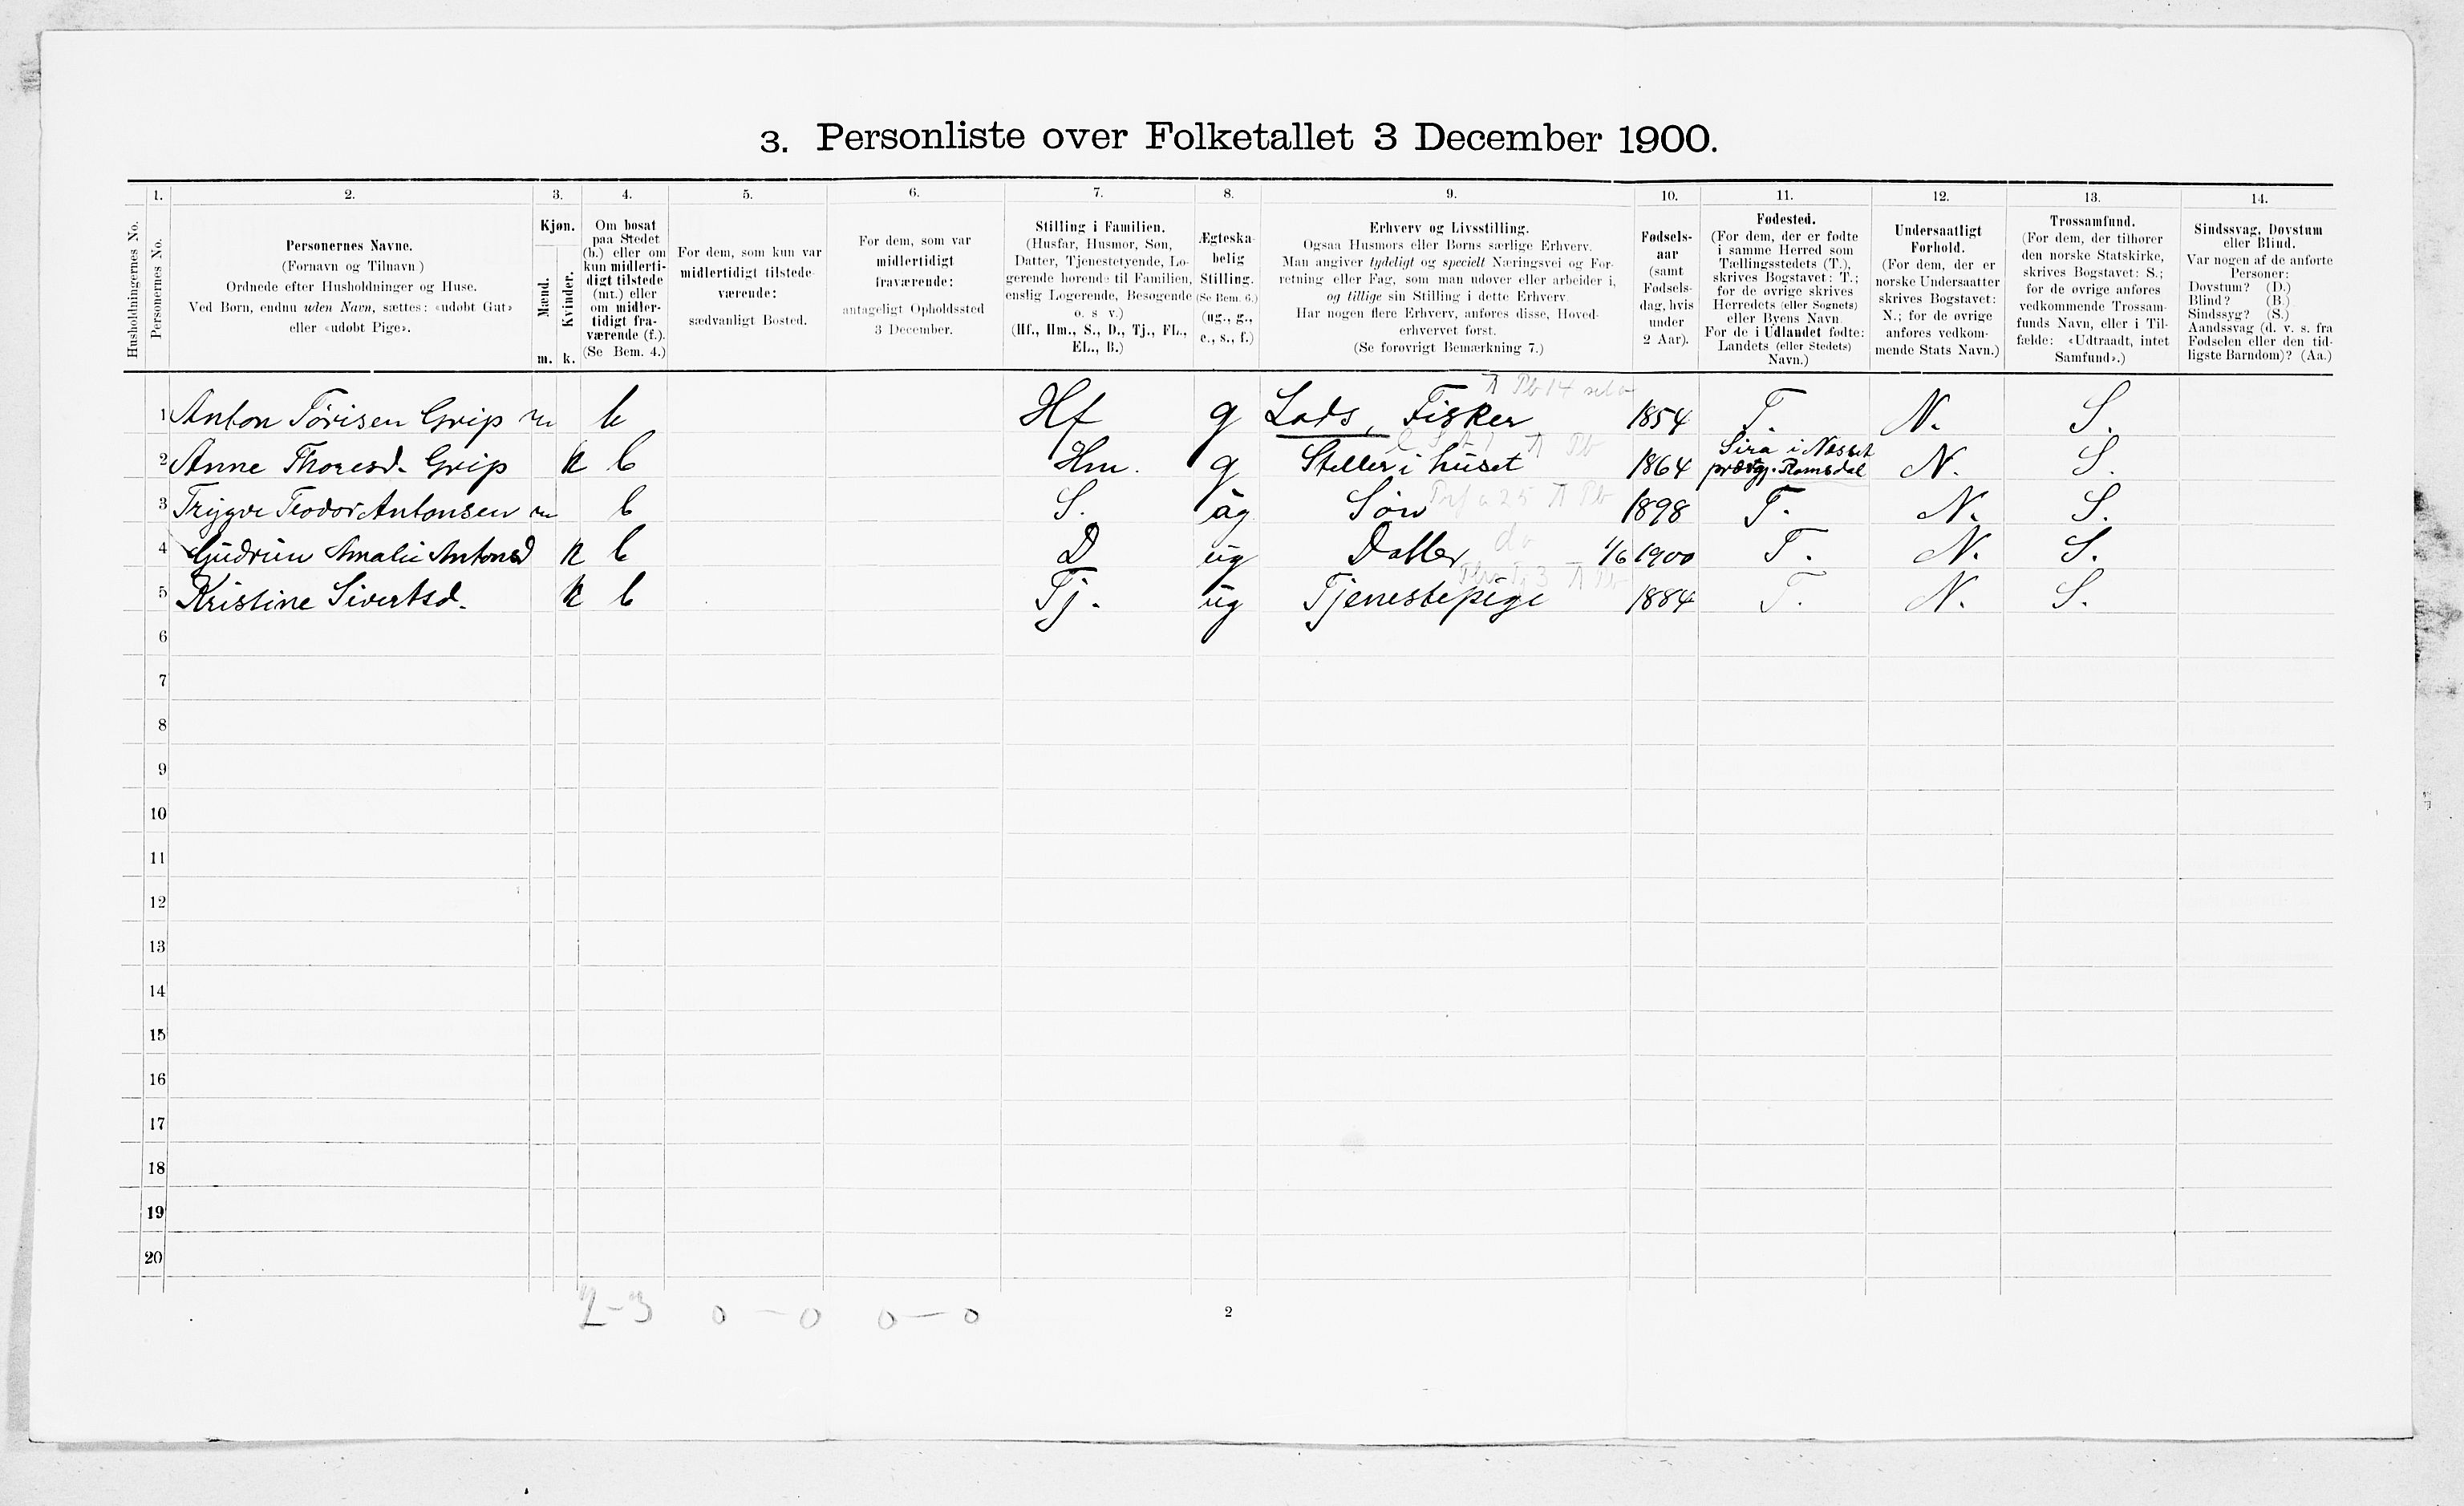 3. Personliste over Folketallet 3 December 1900.
1. 2. 3. 4. 5. 6. 7. 8. 9. 10. 11. 12. 13. 14.
Husholdningernes No.
Personernes No.
Personernes Navne.
(Fornavn og Tilnavn.)
Ordnede efter Husholdninger og Huse.
Ved Børn, endnu uden Navn, sættes: «udøbt Gut»
eller «udøbt Pige».
Kjøn.
Mænd.
Kvinder.
m. k.
Om bosat
paa Stedet
(b.) eller om
kun midlerti-
digt tilstede
(mt.) eller
om midler-
tidigt fra-
værende (f.).
(Se Bem. 4.)
For dem, som kun var
midlertidigt tilstede-
værende:
sædvanligt Bosted.
For dem, som var
midlertidigt
fraværende:
antageligt Opholdssted
3 December.
Stilling i Familien.
(Husfar, Husmor, Søn,
Datter, Tjenestetyende, Lo-
gerende hørende til Familien,
enslig Logerende, Besøgende
o. s. v.)
(Hf., Hm., S., D., Tj., FL.,
EL., B.)
Ægteska-
belig
Stilling.
(Se Bem. 6.)
(ug., g.,
e., s., f.)
Erhverv og Livsstilling.
Ogsaa Husmors eller Børns særlige Erhverv.
Man angiver tydeligt og specielt Næringsvei og For-
retning eller Fag, som man udøver eller arbeider i,
og tillige sin Stilling i dette Erhverv.
Har nogen flere Erhverv, anføres disse, Hoved-
erhvervet først.
(Se forøvrigt Bemærkning 7.)
Fødsels-
aar
(samt
Fødsels-
dag, hvis
under
2 Aar).
Fødested.
(For dem, der er fødte
i samme Herred som
Tællingsstedets (T.),
skrives Bogstavet: T.;
for de øvrige skrives
Herredets (eller Sognets)
eller Byens Navn.
For de i Udlandet fødte:
Landets (eller Stedets)
Navn.)
Undersaatligt
Forhold.
(For dem, der er
norske Undersaatter
skrives Bogstavet:
N.; for de øvrige
anføres vedkom-
mende Stats Navn.)
Trossamfund.
(For dem, der tilhører
den norske Statskirke,
skrives Bogstavet: S.;
for de øvrige anføres
vedkommende Trossam-
funds Navn, eller i Til-
fælde: «Udtraadt, intet
Samfund».)
Sindssvag, Døvstum
eller Blind.
Var nogen af de anførte
Personer:
Døvstum? (D.)
Blind? (B.)
Sindssyg? (S.)
Aandssvag (d. v. s. fra
Fødselen eller den tid-
ligste Barndom)? (Aa.)
1 Anton Tørisen Grip m b Hf g Lods, Fisker 1854 T. N. S.
2 Anne Thoresd. Grip k b Hm. g Steller i huset 1864 Sira i Nesset
prestgj. Romsdal N. S.
3 Trygve Teodor Antonsen m b S. ug Søn 1898 T. N. S.
do
4 Gudrun Amalie Antonsd k b D ug Datter 1/6 1900 T. N. S.
5 Kristine Sivertsd. k b Tj. ug Tjenestepige 1884 T. N. S.
6
7
8
9
10
11
12
13
14
15
16
17
18
19
20
2-3 0-0 0-0
2